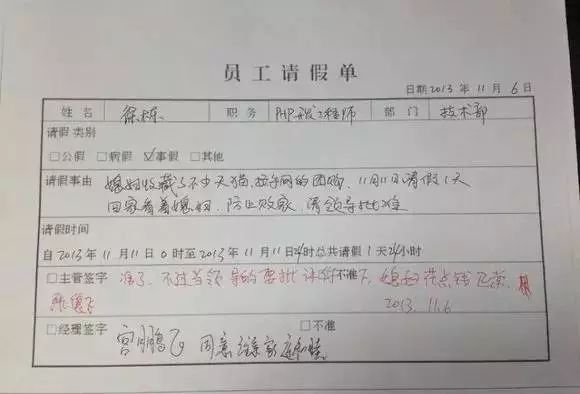 员工请假单
日期2013年11月6日
姓名 徐栋 职务 PHP开发工程师 部门 技术部
请假类别
□公假 □病假 ☑事假 □其他
请假事由 媳妇收藏了不少天猫、拉手网的团购，11月11日请假1天
回家看着媳妇，防止败家，请领导批准
请假时间
自2013年11月11日0时至2013年11月11日24时总共请假1天24小时
□主管签字 准了，不过当领导的要批评你 不准 下，媳妇花点钱正常，
2013.11.6
□经理签字 宫鹏飞 同意 维系家庭和睦 □不准